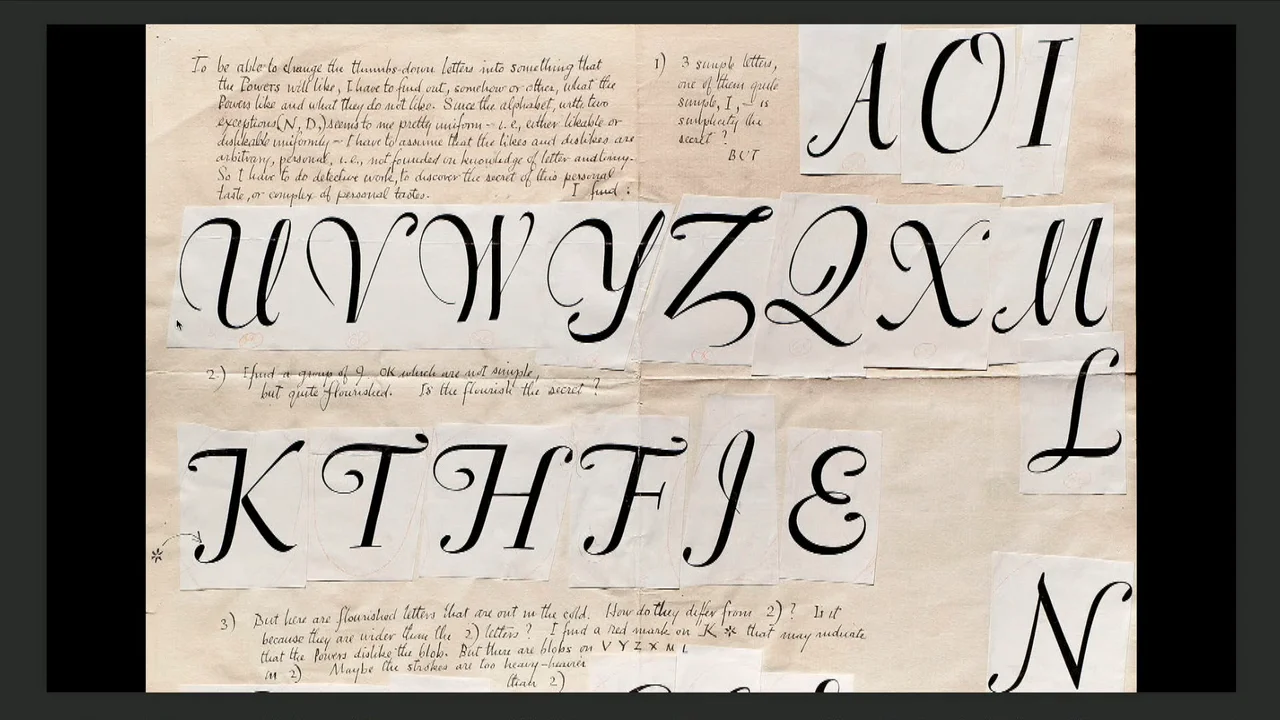 To be able to change the thumbs-down letters into something that
the Powers will like, I have to find out, somehow or other, what the
Powers like and what they do not like. Since the alphabet, with two
exceptions (N, D,) seems to me pretty uniform – i.e., either likable or
dislikable uniformly – I have to assume that the likes and dislikes are
arbitrary, personal, i.e., not founded on knowledge of letter anatomy.
So I have to do detective work, to discover the secret of this personal
taste, or complex of personal tastes.
I find:
1) 3 simple letters,
one of them quite
simple, I, – is
simplicity the
secret?
BUT
A O I
U V W Y Z Q X M
2.) I find a group of 9. OK which are not simple,
but quite flourished. Is the flourish the secret?
L
K T H F J E
3) But here are flourished letters that are out in the cold. How do they differ from 2)? Is it
because they are wider than the 2) letters? I find a red mark on K * that may indicate
that the Powers dislike the blob. But there are blobs on V Y Z X M L
in 2) Maybe the strokes are too heavy – heavier
than 2)
N